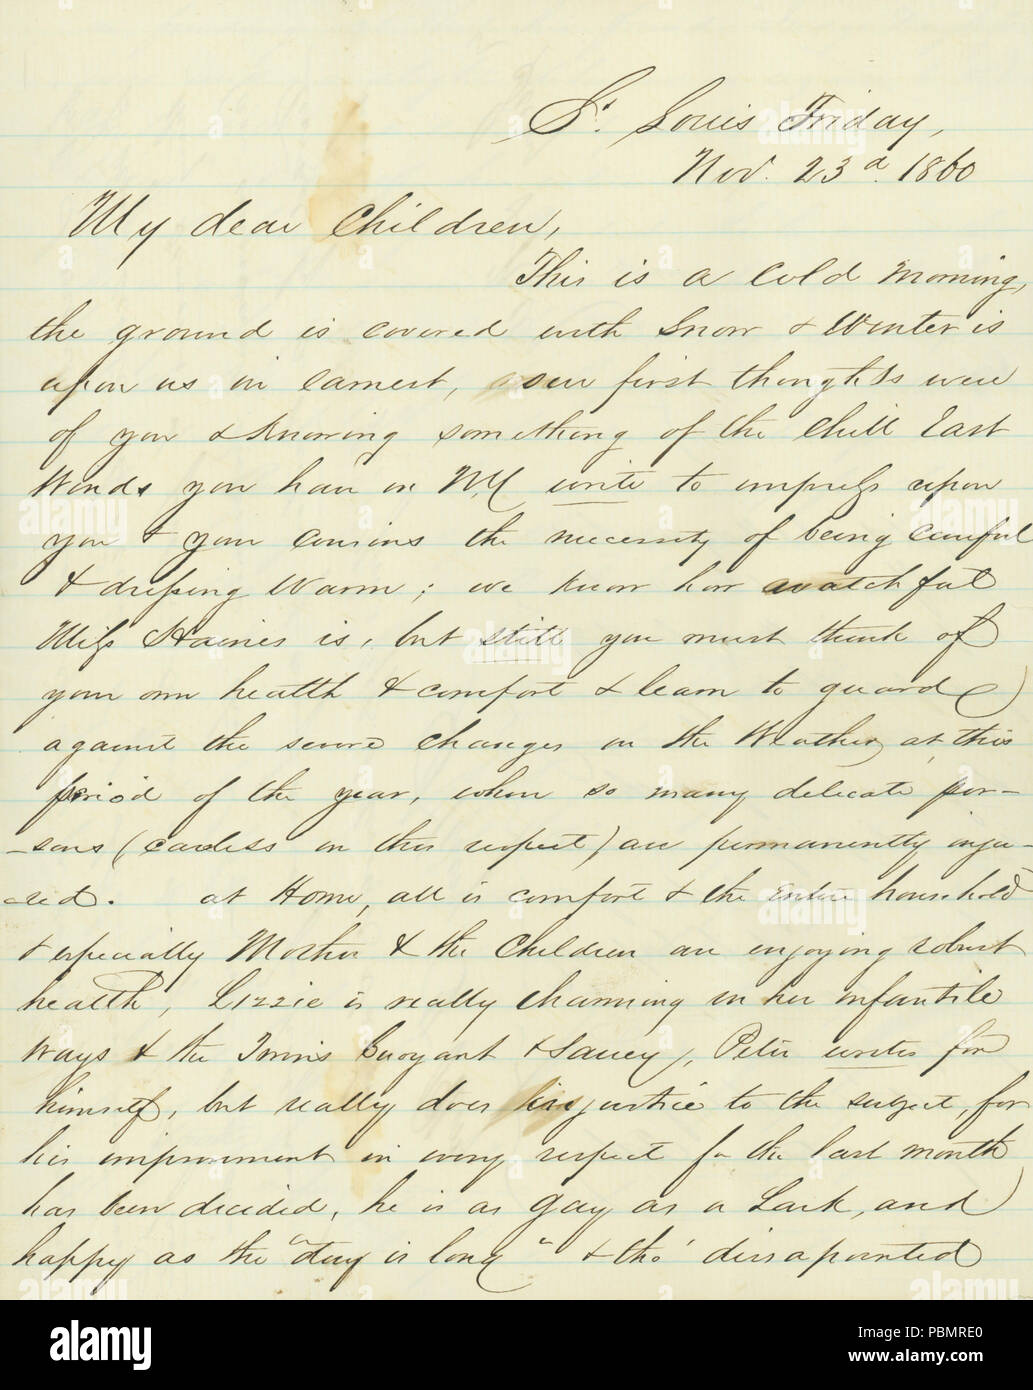 St. Louis Friday,
Nov. 23d. 1860
My dear Children,
This is a cold morning,
the ground is covered with Snow & Winter is
upon us in earnest, our first thoughts were
of you & Knowing something of the Chill East
Winds you have in NY write to impress upon
you & your cousins the necessity of being careful
& dressing Warm; we know how watchful
Miss Haines is, but still you must think of
your own health & comfort & learn to guard
against the severe changes in the Weather, at this
period of the year, when so many delicate per-
-sons (careless in this respect) are permanently inju-
-red. at Home, all is comfort & the entire household
& especially Mother & the Children are enjoying robust
health, Lizzie is really charming in her infantile
ways & the Twins Buoyant & Saucy, Peter writes for
himself, but really does injustice to the subject, for
his improvement in every respect for the last month
has been decided, he is as gay as a Lark, and
happy as the "day is long" & tho' dissapointed
alamy
PBMRE0
www.alamy.com